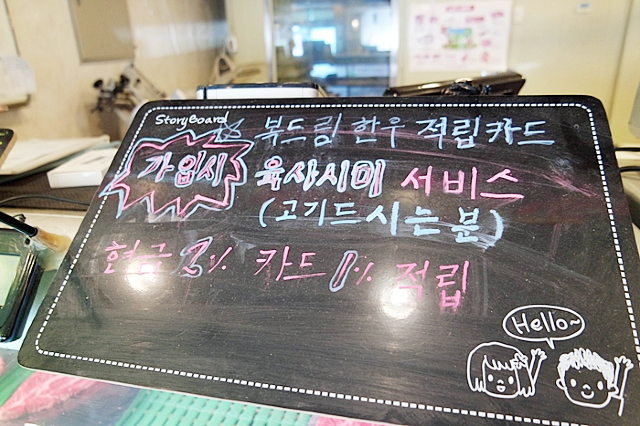 StoryBoard
북드림 한우 적립카드
가입시 육사시미 서비스
(고기드시는 분)
현금 2% 카드 1% 적립
Hello~